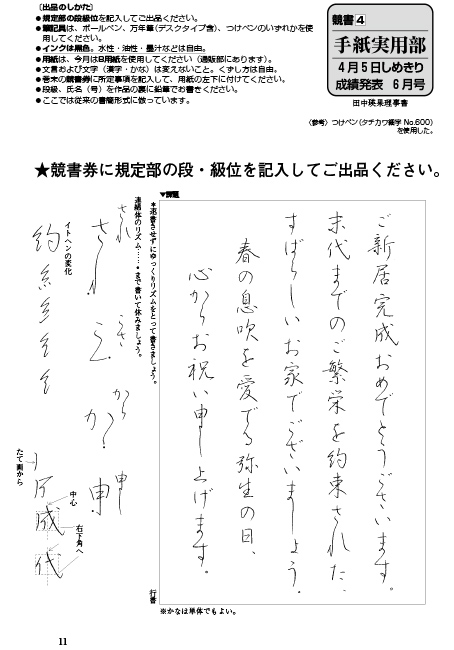 〔出品のしかた〕
●規定部の段級位を記入してご出品ください。
●筆記具は、ボールペン、万年筆(デスクタイプ含)、つけペンのいずれかを使
用してください。
●インクは黒色。水性・油性・墨汁などは自由。
●用紙は、今月はB用紙を使用してください(通販部にあります)。
●文言および文字(漢字・かな)は変えないこと。くずし方は自由。
●巻末の競書券に所定事項を記入して、用紙の左下に付けてください。
●段級、氏名(号)を作品の裏に鉛筆でお書きください。
●ここでは従来の書簡形式に倣っています。
競書4
手紙実用部
4月5日しめきり
成績発表 6月号
田中瑛果理事書
〈参考〉つけペン(タチカワ細字 No.600)
を使用した。
★競書券に規定部の段・級位を記入してご出品ください。
▼課題
ご新居完成おめでとうございます。
末代までのご繁栄を約束された、
すばらしいお家でございましょう。
春の息吹を愛でる弥生の日、
心からお祝い申し上げます。
行書
※かなは単体でもよい。
＊速書きせずにゆっくりリズムをとって書きましょう。
連綿体のリズム……•まで書いて休みましょう。
され
され
うご
から
か
申し
申
イトヘンの変化
約
糸
糸
糸
糸
たて画から
成
中心
右下角へ
代
11